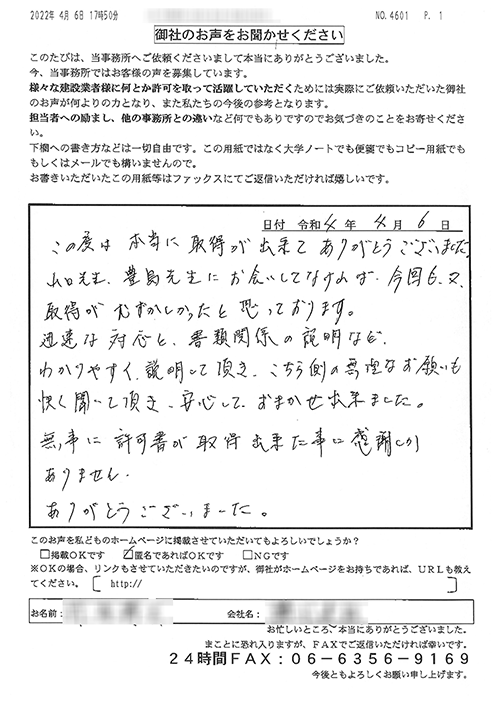 2022年 4月 6日 17時50分 NO. 4601 P. 1
御社のお声をお聞かせください
このたびは、当事務所へご依頼くださいまして本当にありがとうございました。
今、当事務所ではお客様の声を募集しています。
様々な建設業者様に何とか許可を取って活躍していただくためには実際にご依頼いただいた御社
のお声が何よりの力となり、また私たちの今後の参考となります。
担当者への励まし、他の事務所との違いなど何でもありですのでお気づきのことをお寄せくださ
い。
下欄への書き方などは一切自由です。この用紙ではなく大学ノートでも便箋でもコピー用紙でも
もしくはメールでも構いませんので。
お書きいただいたこの用紙等はファックスにてご返信いただければ嬉しいです。
日付 令和 4 年 4 月 6 日
この度は 本当に 取得が 出来て ありがとうございました。
山口先生、豊島先生に お会いしてなければ、今回も、
取得が むずかしかったと 思っております。
迅速な 対応と、書類関係の 説明など、
わかりやすく、説明して頂き、こちら側の無理なお願いも
快く聞いて頂き、安心して、おまかせ出来ました。
無事に 許可書が 取得 出来た事に 感謝しか
ありません。
ありがとうございました。
このお声を私どものホームページに掲載させていただいてもよろしいでしょうか?
□掲載OKです ☑匿名であればOKです □NGです
※OKの場合、リンクもさせていただきたいのですが、御社がホームページをお持ちであれば、URLも教え
てください。[ http://
お名前: 会社名:
お忙しいところ、本当にありがとうございました。
まことに恐れ入りますが、FAXでご返信いただければ幸いです。
24時間FAX:06-6356-9169
今後ともよろしくお願い申し上げます。